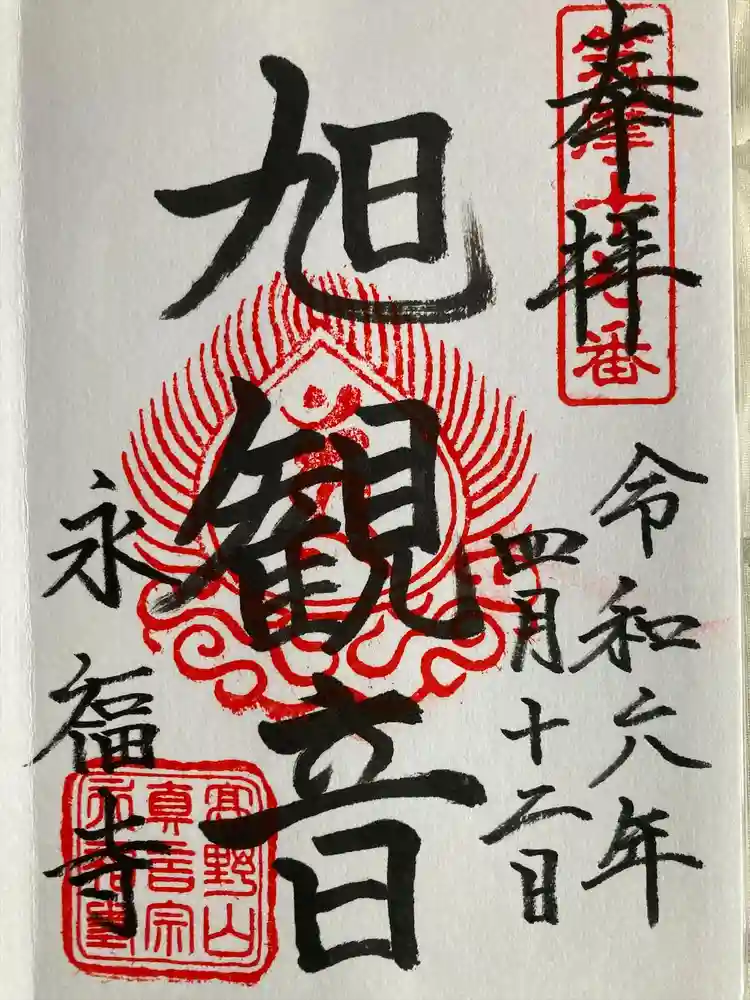 奉拝
番
令和六年
四月十二日
旭観音
永福寺
高野山
真言宗